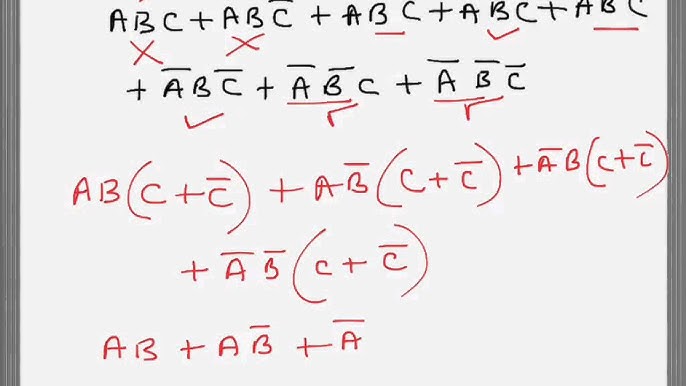 ABC + ABC̅ + ABC + ABC + ABC
+ A̅BC̅ + A̅B̅C + A̅B̅C̅
AB(C + C̅) + AB̅(C + C̅) + A̅B(C + C̅)
+ A̅B̅(C + C̅)
AB + AB̅ + A̅